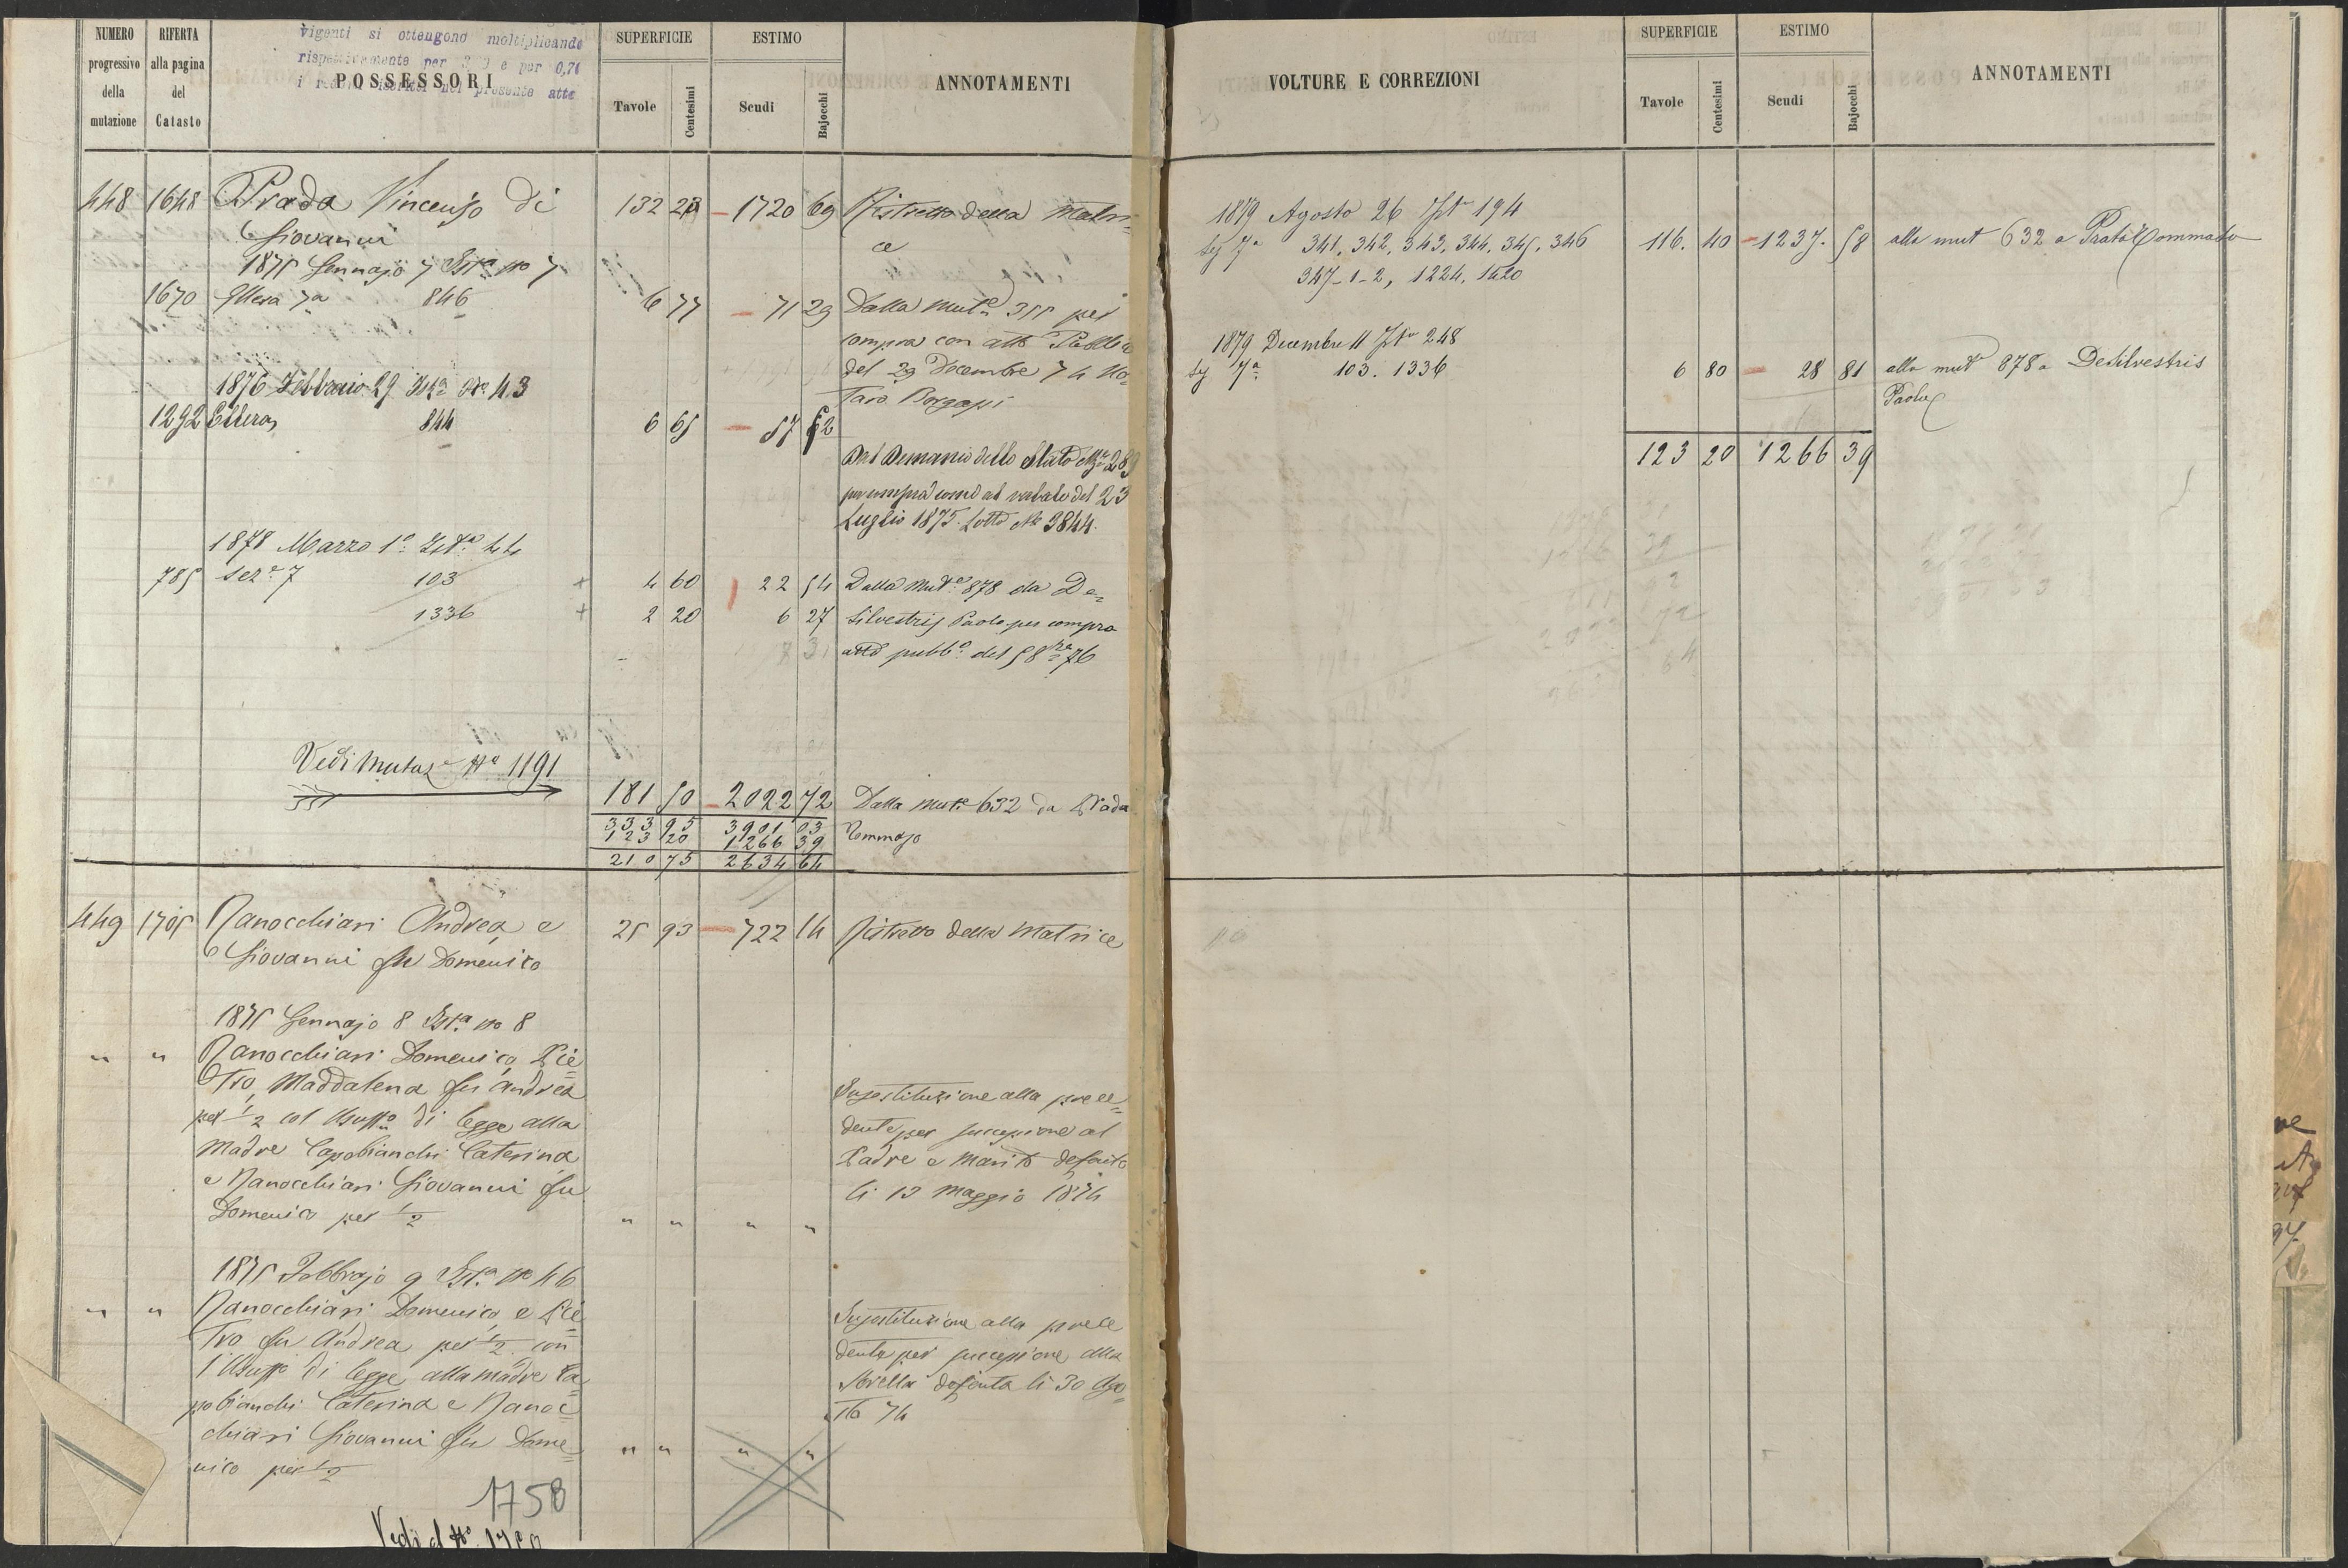 NUMERO progressivo della mutazione
RIFERTA alla pagina del Catasto
vigenti si ottengono moltiplicando
rispettivamente per e per 0,70
i presente atto
POSSESSORI
SUPERFICIE
Tavole Centesimi
ESTIMO
Scudi Bajocchi
ANNOTAMENTI
448 1648 Prada Vincenzo di 132 23 1720 69 Ristretto della Matri=
Giovanni ce
1875 Gennajo 7 Ist.a no 7
1670 Ellera 7a 846 6 77 71 29 Dalla Mut.e 355 per
compra con atto Pubblico
del 29 Decembre 74 No=
taro Borgassi
1876 Febbraio 29 Ista No 43
1292 Ellera 844 6 65 57 52
Dal Demanio dello Stato 289
per compra come al verbale del 23
Luglio 1875. Lotto No 3844.
1878 Marzo 1o Ista 44
785 Sez.e 7 103 + 4 60 22 54 Dalla Mut.e 878 da De=
1336 + 2 20 6 27 Silvestris Paolo per compra
atto pubb.o del 5 8bre 76
Vedi Mutaz.e No 1191
181 50 2022 72 Dalla Mut.e 632 da Prada
333 95 3901 03 Tommaso
123 20 1266 39
210 75 2634 64
449 1705 Ranocchiari Andrea e 25 93 722 14 Ristretto della Matrice
Giovanni fu Domenico
1875 Gennajo 8 Ist.a no 8
" " Ranocchiari Domenico, Pie=
tro, Maddalena fu Andrea
per 1/2 col Usuff.o di legge alla
Madre Capobianchi Caterina
e Ranocchiari Giovanni fu
Domenico per 1/2
" " " "
Sustituzione alla prece=
dente per successione al
Padre e Marito defunto
li 13 Maggio 1874
1875 Febbrajo 9 Ist.a no 46
" " Ranocchiari Domenico e Pie=
tro fu Andrea per 1/2 con
l'Usuff.o di legge alla madre Ca=
pobianchi Caterina e Ranoc=
chiari Giovanni fu Dome=
nico per 1/2
" " " "
Sustituzione alla prece
dente per successione alla
Sorella defunta li 30 Ago=
sto 74
1758
Vedi al No
VOLTURE E CORREZIONI
SUPERFICIE
Tavole Centesimi
ESTIMO
Scudi Bajocchi
ANNOTAMENTI
1879 Agosto 26 Ista 194
Sez 7a 341, 342, 343, 344, 345, 346 116. 40 1237. 58 alla mut 632 a Prata Tommaso
347-1-2, 1224, 1420
1879 Decembre 11 Ista 248
Sez 7a 103. 1336 6 80 28 81 alla mut 878 a DeSilvestris
Paolo
123 20 1266 39